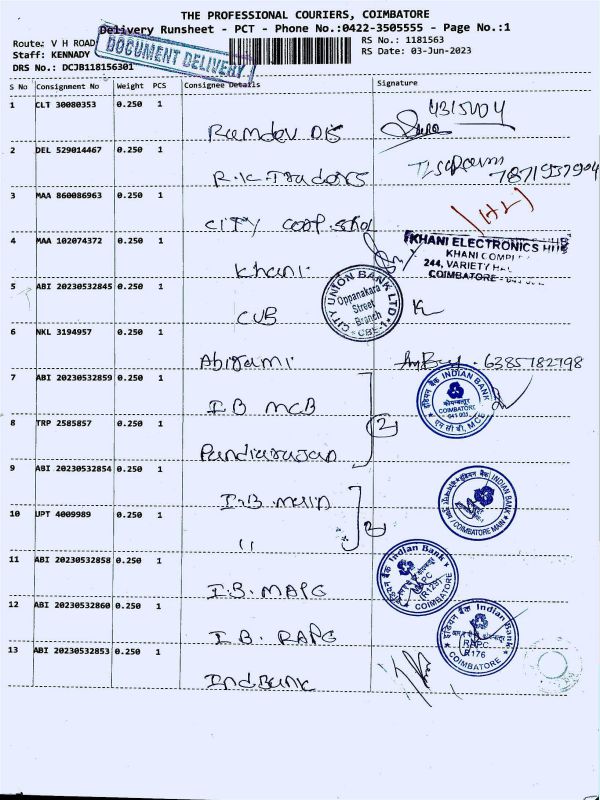 THE PROFESSIONAL COURIERS, COIMBATORE
Delivery Runsheet - PCT - Phone No.:0422-3505555 - Page No.:1
Route: V H ROAD
RS No.: 1181563
Staff: KENNADY
RS Date: 03-Jun-2023
DRS No.: DCJB118156301
DOCUMENT DELIVERY
S No Consignment No Weight PCS Consignee Details Signature
1 CLT 30080353 0.250 1
Ramdev
2 DEL 529014467 0.250 1
R.K. Traders 7871937904
3 MAA 860086963 0.250 1
CITY coop
4 MAA 102074372 0.250 1
Khani
KHANI ELECTRONICS HUB
KHANI COMPL
244, VARIETY
COIMBATORE
5 ABI 20230532845 0.250 1
CUB
CITY UNION BANK LTD
Oppanakara
Street
Branch
CBE-1
6 NKL 3194957 0.250 1
Abirami 6385782798
7 ABI 20230532859 0.250 1
I B MCB
इंडियन बैंक INDIAN BANK
कोयम्बत्तूर
COIMBATORE
641 001
एम सी बी, MCB
8 TRP 2585857 0.250 1
Pandiarajan
2
9 ABI 20230532854 0.250 1
I.B main
INDIAN BANK
COIMBATORE MAIN
10 UPT 4009989 0.250 1
"
2
11 ABI 20230532858 0.250 1
I.B. MAPC
Indian Bank
COIMBATORE
12 ABI 20230532860 0.250 1
I B. RAPC
इंडियन बैंक Indian Bank
RAPC
R176
COIMBATORE
13 ABI 20230532853 0.250 1
Ind Bank